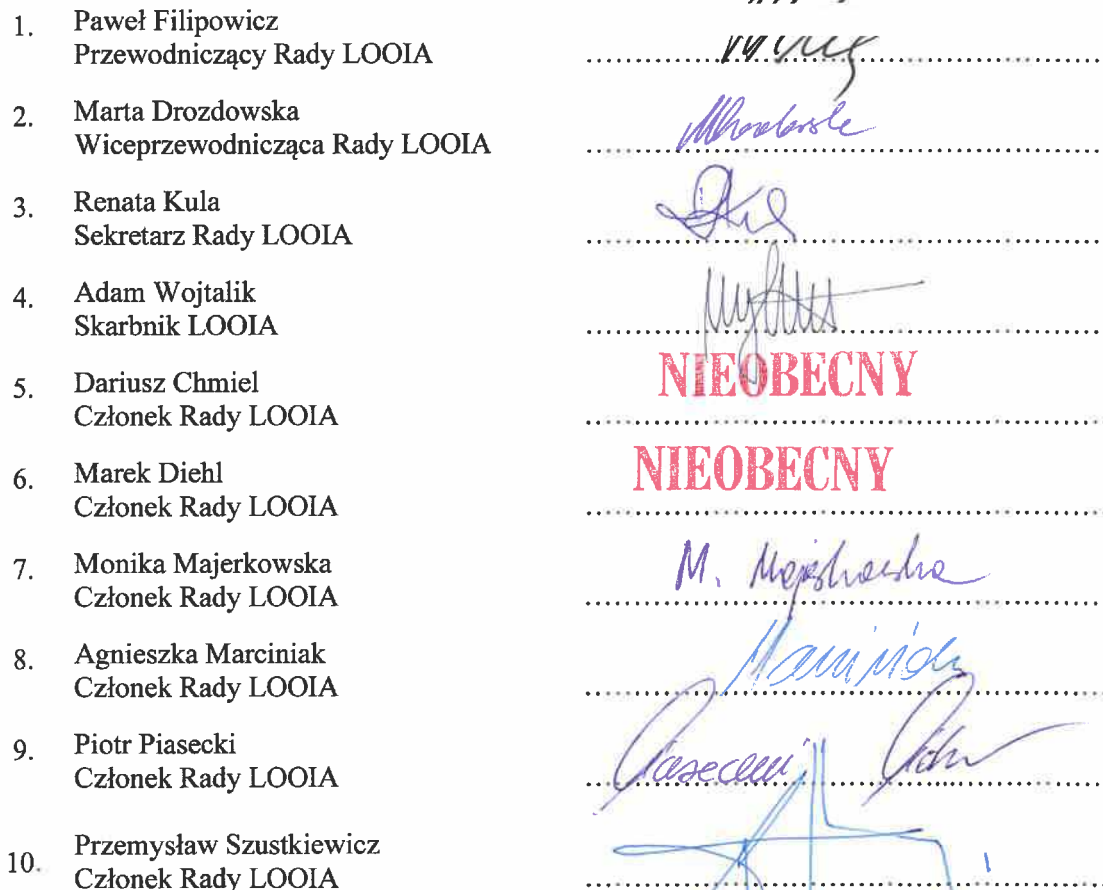 1. Paweł Filipowicz
Przewodniczący Rady LOOIA
2. Marta Drozdowska
Wiceprzewodnicząca Rady LOOIA
3. Renata Kula
Sekretarz Rady LOOIA
4. Adam Wojtalik
Skarbnik LOOIA
5. Dariusz Chmiel
Członek Rady LOOIA
NIEOBECNY
6. Marek Diehl
Członek Rady LOOIA
NIEOBECNY
7. Monika Majerkowska
Członek Rady LOOIA
M. Majerkowska
8. Agnieszka Marciniak
Członek Rady LOOIA
9. Piotr Piasecki
Członek Rady LOOIA
Piasecki Piotr
10. Przemysław Szustkiewicz
Członek Rady LOOIA